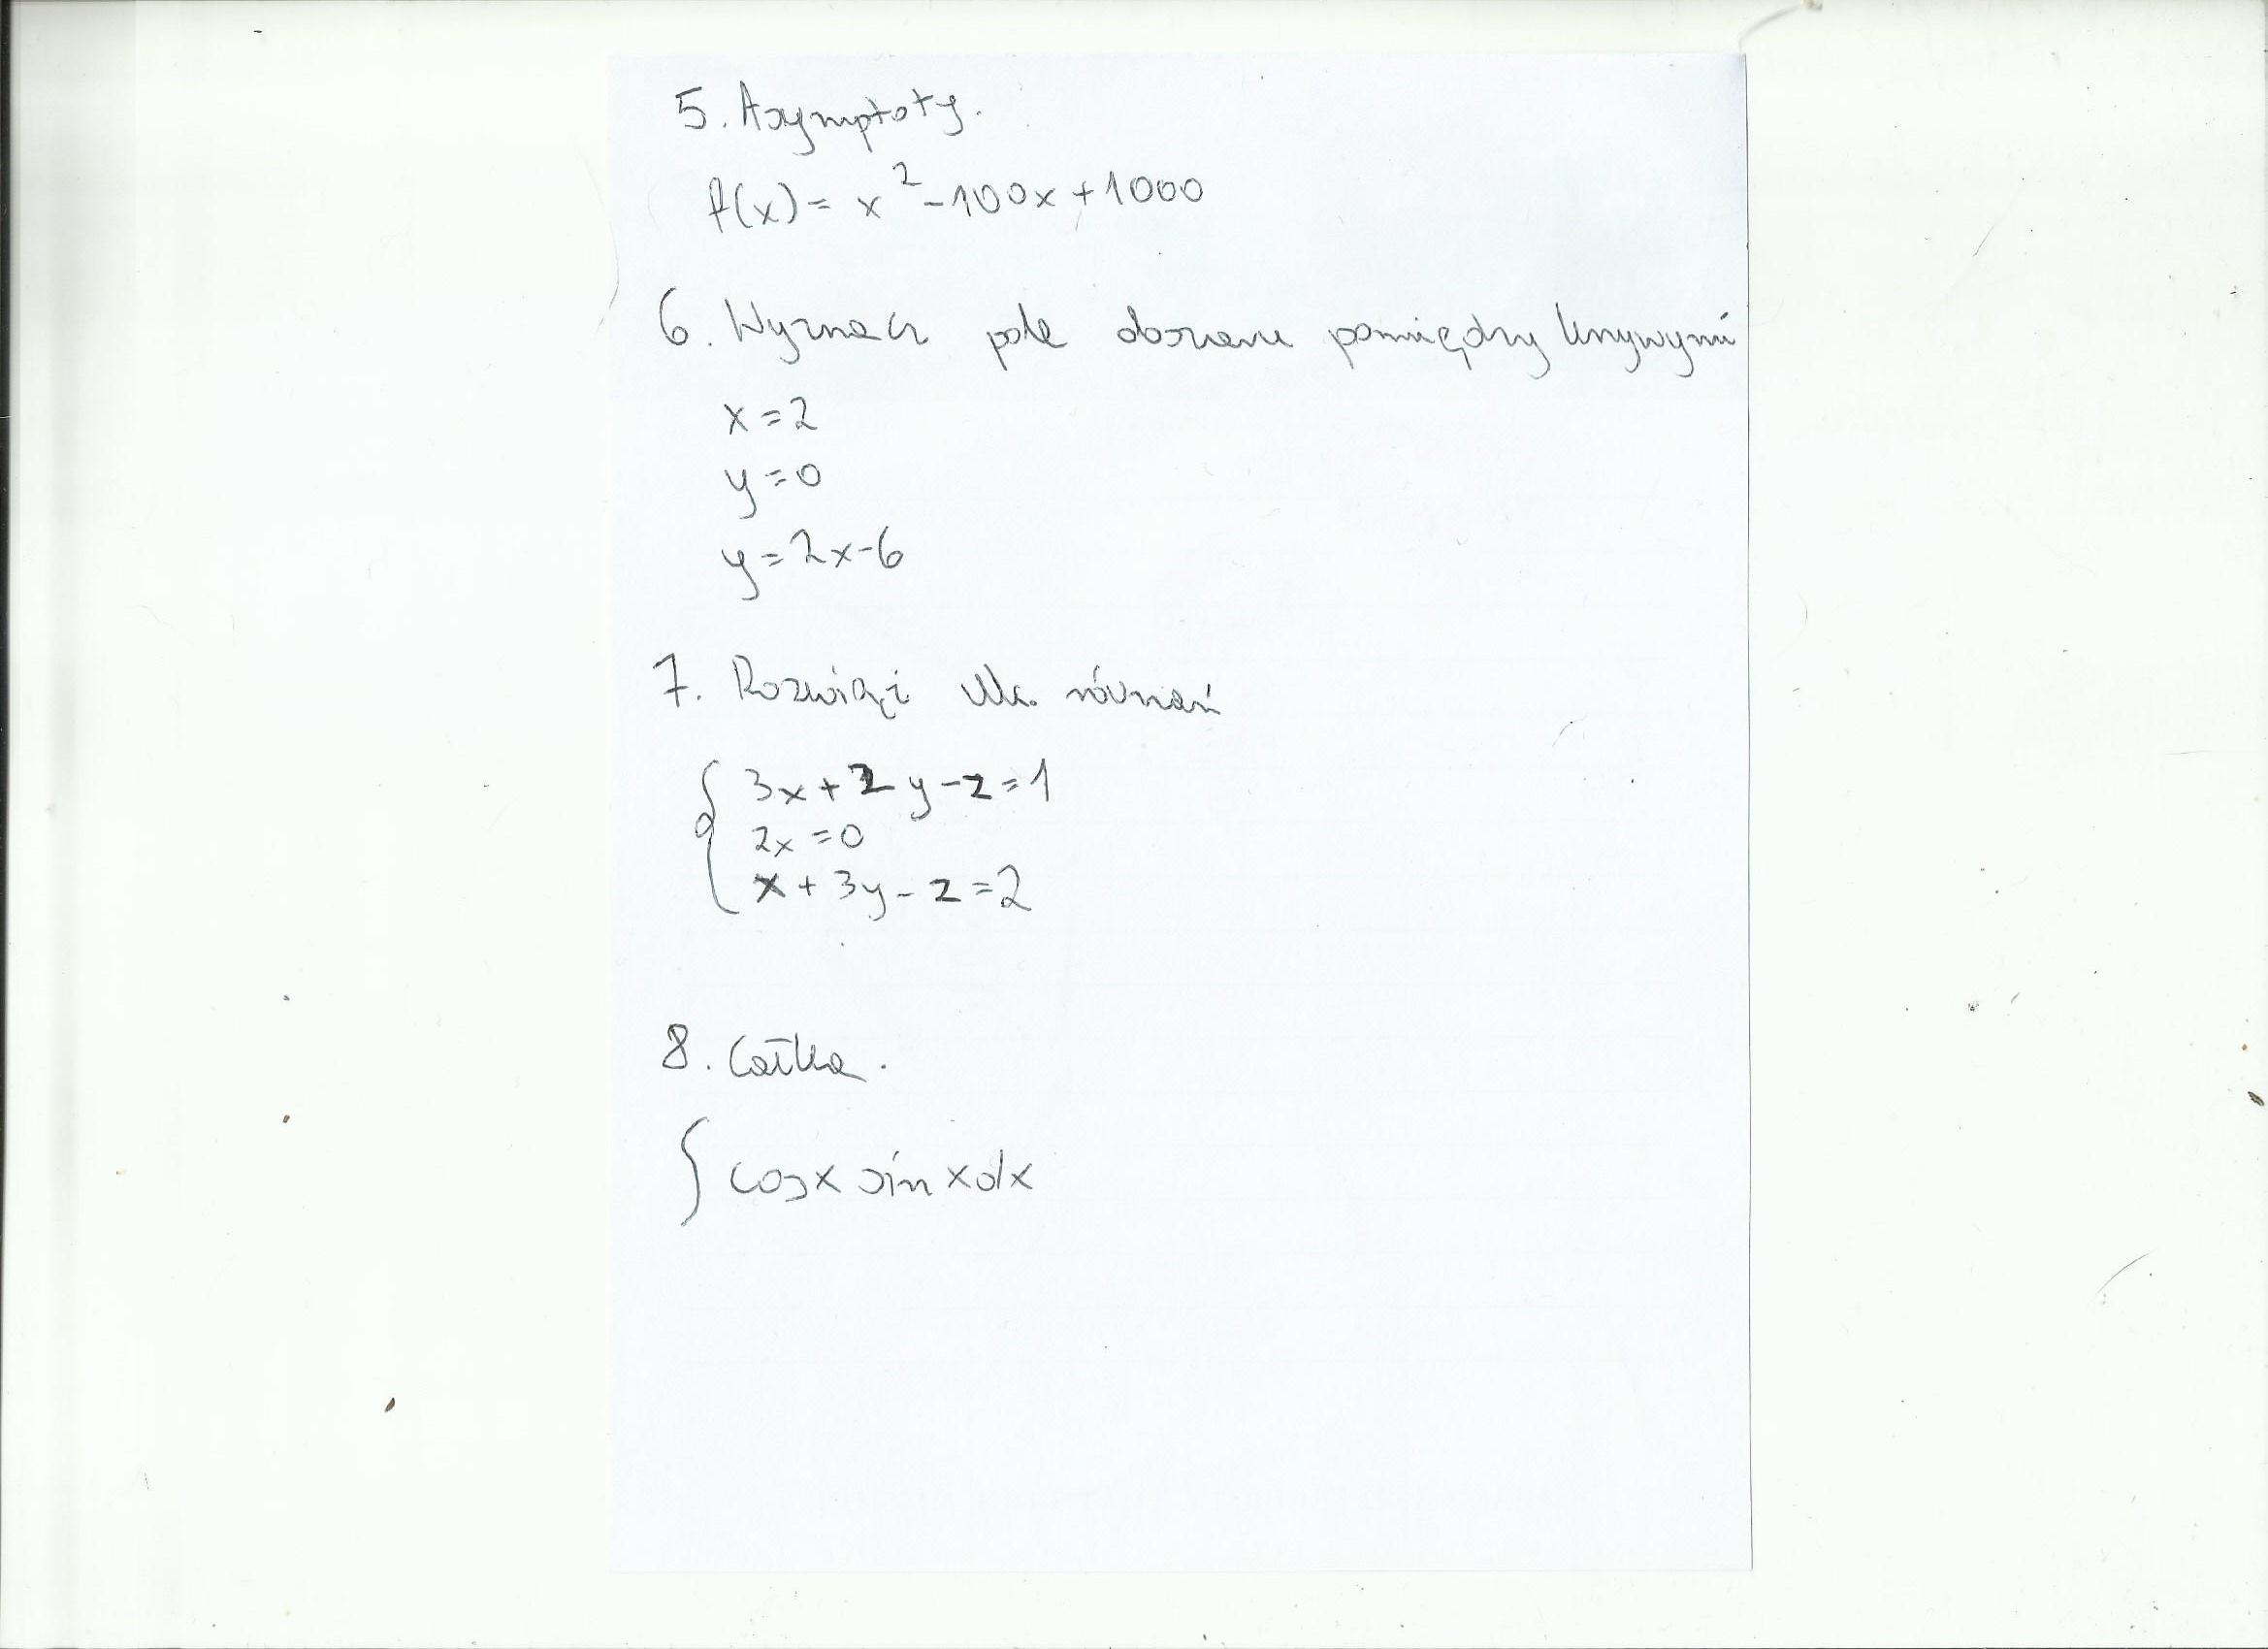 5. Asymptoty.
f(x) = x² - 100x + 1000
6. Wyznacz pole obszaru pomiędzy krzywymi
x = 2
y = 0
y = 2x - 6
7. Rozwiąż ukł. równań
3x + 2y - z = 1
2x = 0
x + 3y - z = 2
8. Całka.
∫ cosx sin x dx